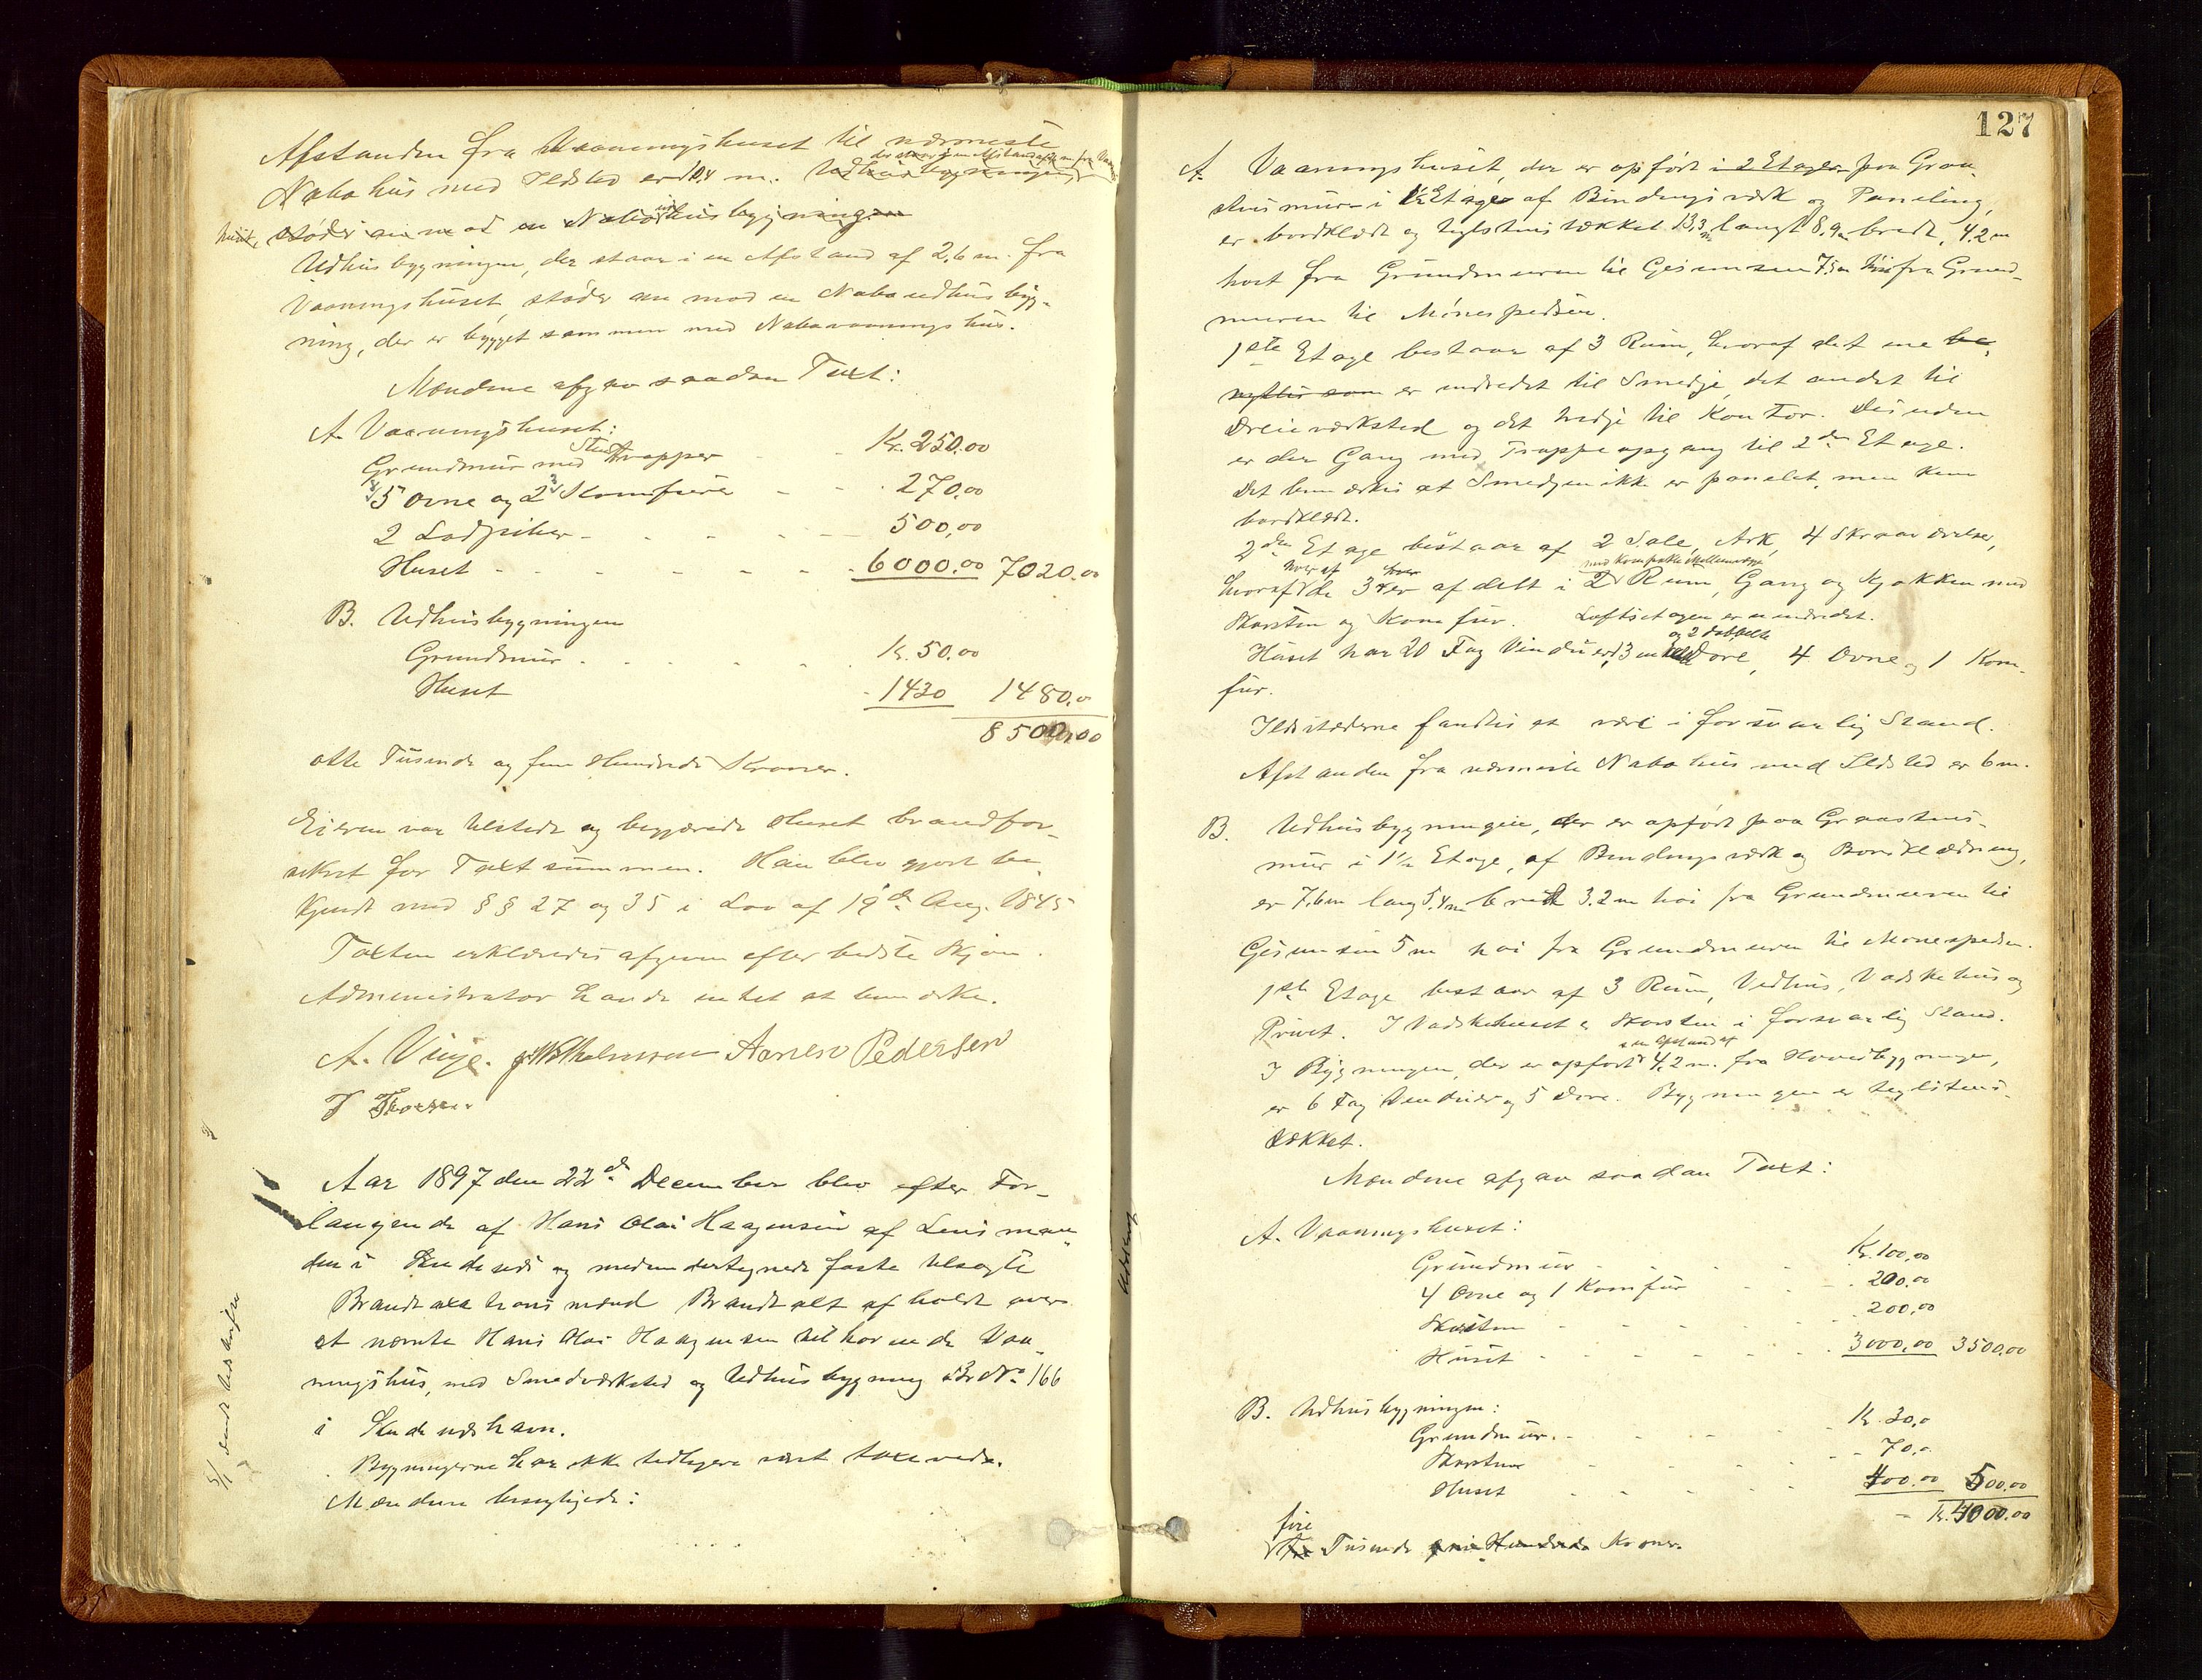 Afstanden fra Vaaningshuset til nærmeste
Nabohus med Ildsted er 10,4 m. Udhusbygningen,
støder an mod en Nabo udhusbygning
Udhusbygningen, der staar i en Afstand af 2,6 m. fra
Vaaningshuset, støder an mod en Naboudhusbyg-
ning, der er bygget sammen med Nabovaaningshus.
Mændene afgav saadan Taxt:
A. Vaaningshuset:
Grundmur med Stentrapper - Kr. 250,00
5 Ovne og 2 Komfurer - - 270,00
2 Ladpiber - - - - 500,00
Huset - - - - - 6000,00 7020,00
B. Udhusbygningen
Grundmur - - - - Kr. 50,00
Huset - 1430 1480,0
8500,00
otte Tusinde og fem Hundrede Kroner.
Eieren var tilstede og begjærede Huset brandfor-
sikret for Taxtsummen. Han blev gjort be-
kjendt med §§ 27 og 35 i Lov af 19de Aug. 1845
Taxten erklæredes afgiven efter bedste Skjøn.
Administrator havde intet at bemærke.
A. Vinje. Wilhelmsen Aanen Pedersen
T Thorsen.
Aar 1897 den 22de December blev efter For-
langende af Hans Olai Haagensen af Lensman-
den i Skudesnes og medundertegnede faste tilsagte
Brandtaxationsmænd Brandtaxt afholdt over
et nævnte Hans Olai Haagensen tilhørende Vaa-
ningshus, med Smedværksted og Udhusbygning Br No 166
i Skudesneshavn.
Bygningerne har ikke tidligere været taxerede.
Mændene besigtigede:
5/1 sendt Udskrift
127
A. Vaaningshuset, der er opført i 2 Etager paa Graa-
stensmur i 1½ Etage af Bindingsværk og Paneling,
er bordklædt og taglstenstækket 13,3 m langt 8,9 m bredt, 4,2 m
høit fra Grundmuren til Gesimsen 7,5 m høit fra Grund-
muren til Mønespidsen.
1ste Etage bestaar af 3 Rum, hvoraf det ene be-
nyttes som er indredet til Smedje, det andet til
Dreieværksted og det tredje til Kontor. Desuden
er der Gang med Trappeopgang til 2den Etage.
Det bemærkes at Smedjen ikke er panelet, men kun
bordklædt.
2den Etage bestaar af 2 Sale, Ark, 4 Skraaværelser,
med kompakte Mellemvægge
hvoraf de 3 er afdelt i 2 Rum, Gang og Kjøkken med
Skorsten og Komfur. Loftsetagen er uindredet.
og 2 dobbelte
Huset har 20 Fag Vinduer, 3 enkelte Døre, 4 Ovne og 1 Kom-
fur.
Ildstederne fandtes at være i forsvarlig Stand.
Afstanden fra nærmeste Nabohus med Ildsted er 6 m.
B. Udhusbygningen, der er opført paa Graastens-
mur i 1½ Etage, af Bindingsværk og Bordklædning,
er 7,6 m lang 5,4 m bredt 3.2 m høi fra Grundmuren til
Gesimsen 5 m høi fra Grundmuren til Mønespidsen.
1ste Etage bestaar af 3 Rum, Vedhus, Vadskehus og
Privet. I Vadskehuset er Skorsten i forsvarlig Stand.
i en Afstand af
I Bygningen, der er opført 4,2 m. fra Hovedbygningen,
er 6 Fag Vinduer og 5 Døre. Bygningen er taglstens-
tækket.
Mændene afgav saadan Taxt:
A. Vaaningshuset:
Grundmur - - - Kr. 100,00
4 Ovne og 1 Komfur - - - 200,00
Skorsten - - - - 200,00
Huset - - - - - 3000,00 3500,00
B. Udhusbygningen:
Grundmur. - - - - Kr. 30,0
Skorsten - - - - 70,0
Huset - - - - 400,00 500,00
- Kr. 4000,00
fire
Tusinde Hundrede Kroner.